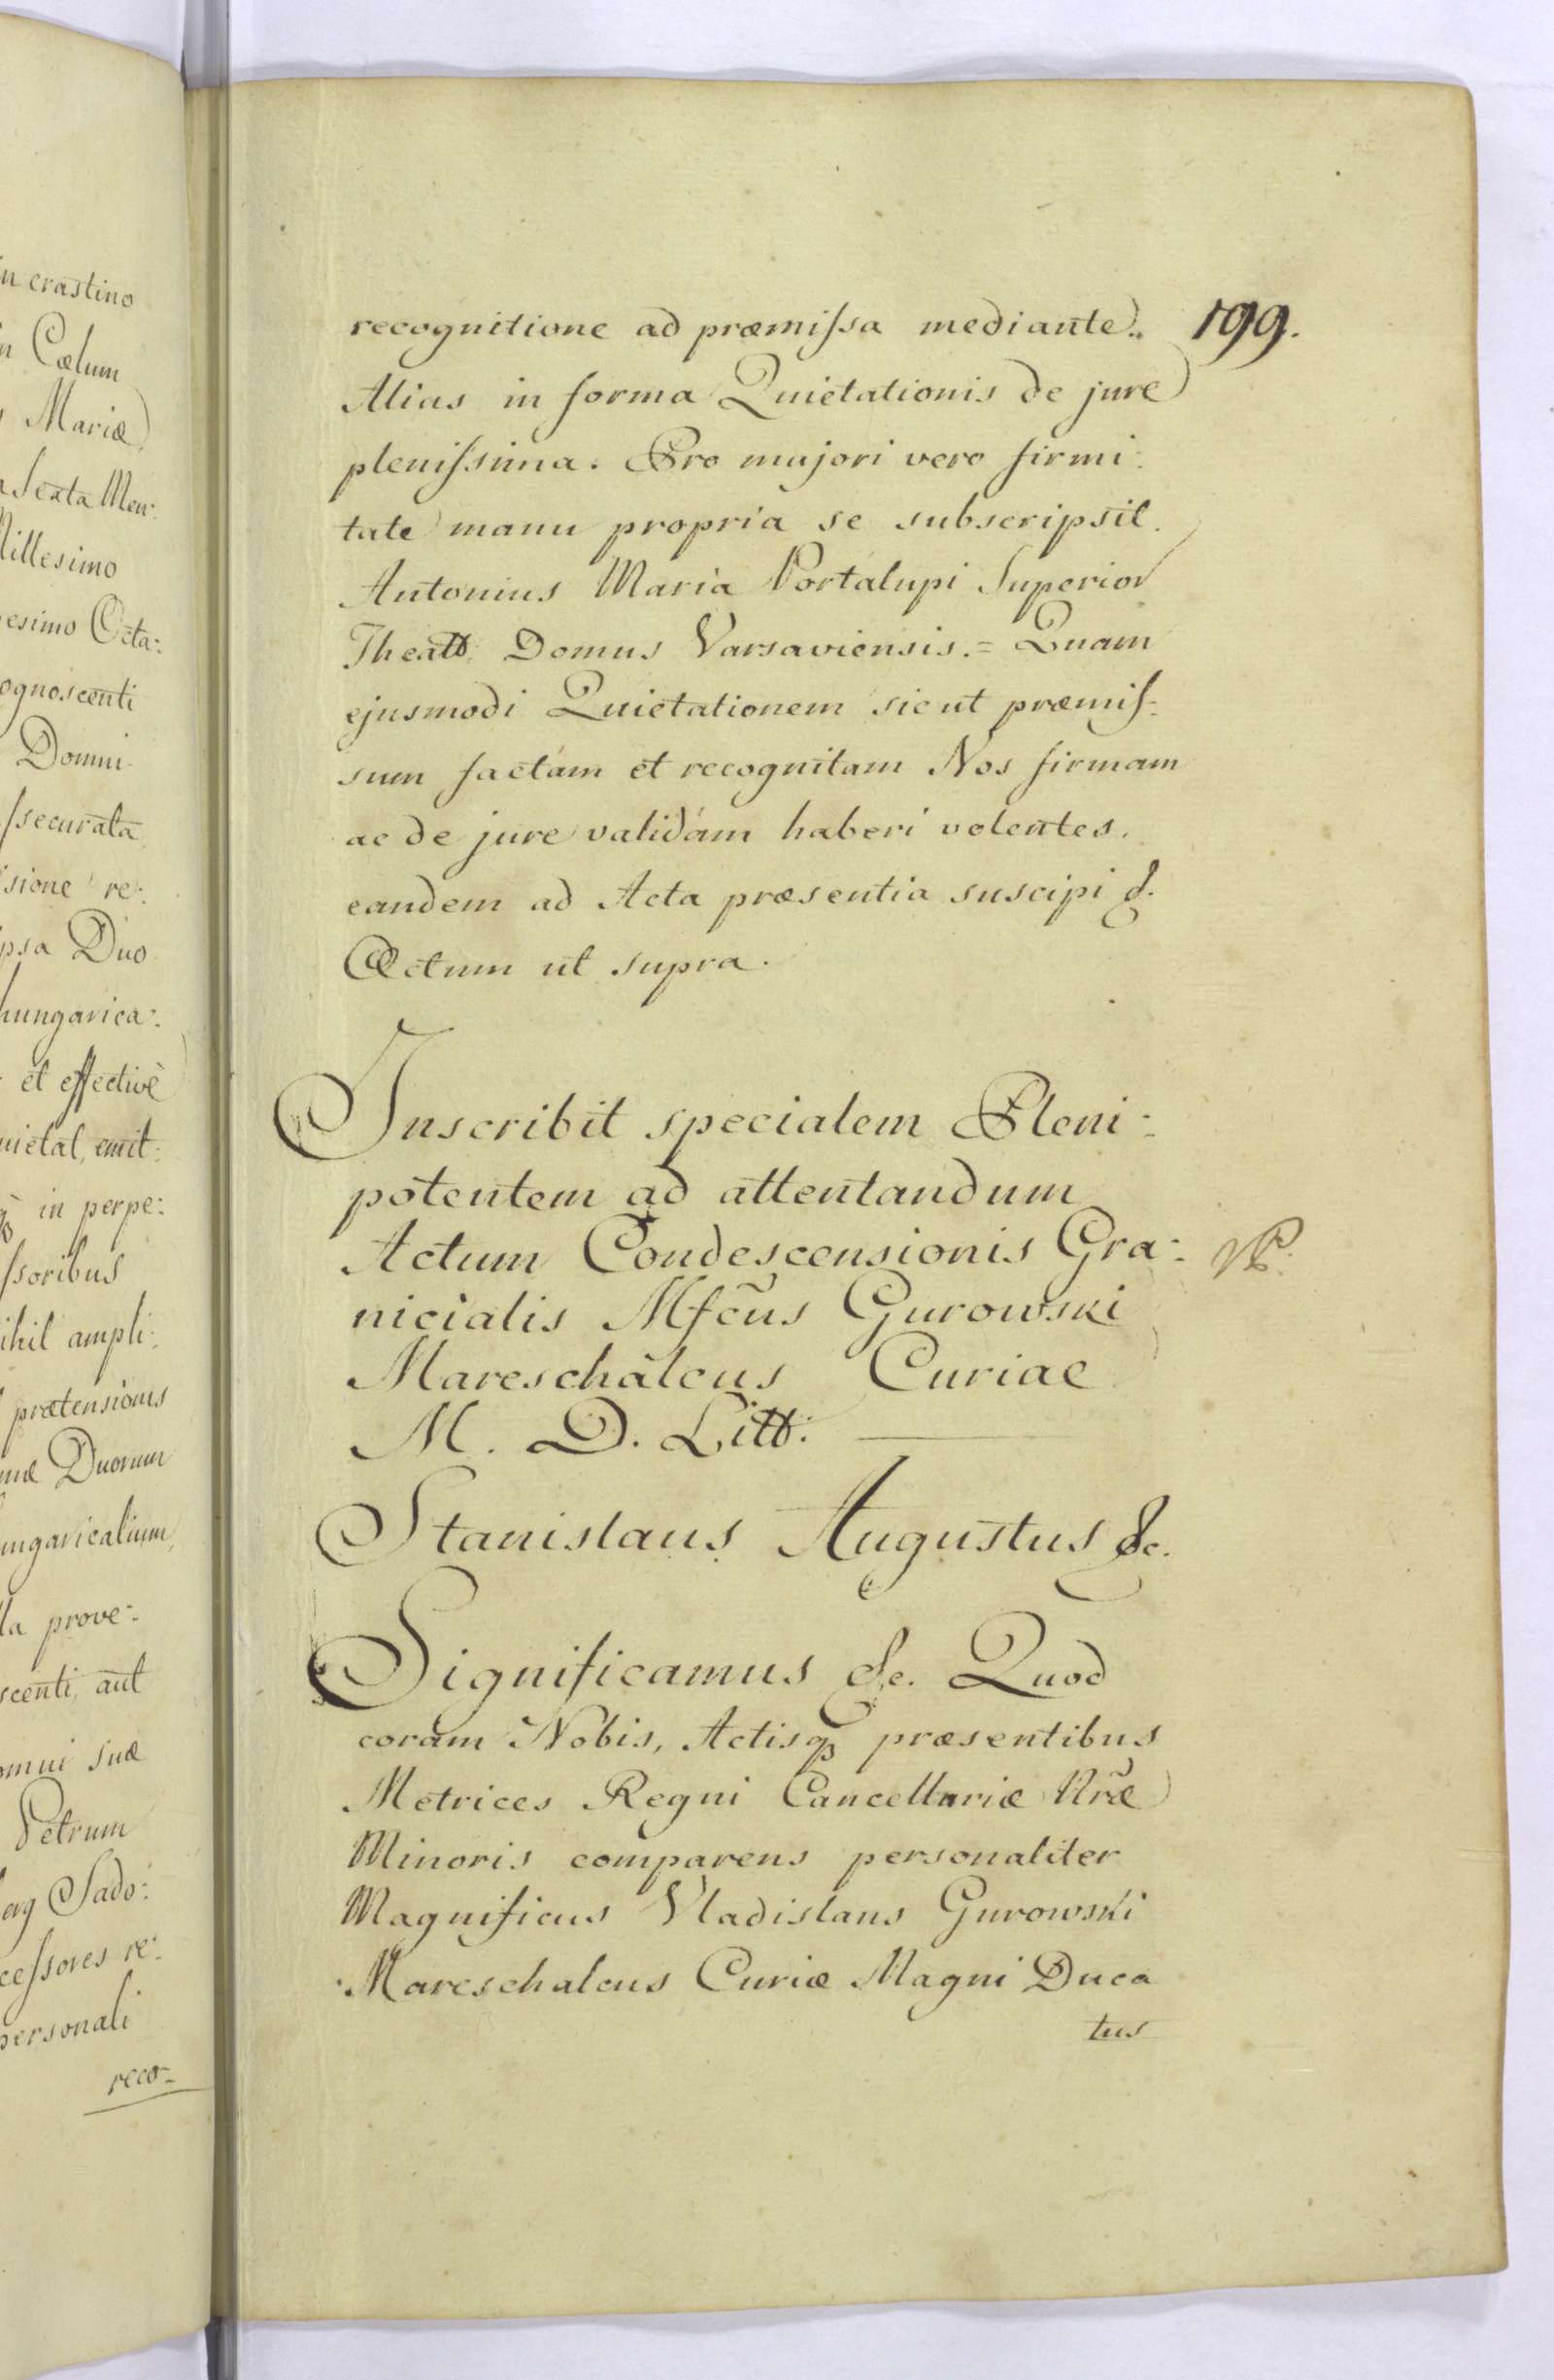 n crastino
n Cælum
Mariæ
Sexta Men:
Millesimo
esimo Octa:
ognoscenti
Domni
ssecurata
sione re:
psa Duo
hungarica:
et effectivè
uietat, emit:
in perpe:
ssoribus
ihil ampli:
prætensionis
Duorum
ungaricalium
la prove:
scenti, aut
omni suæ
Petrum
Sado:
cessores re:
personali
reco-
recognitione ad præmissa mediante. 199.
Alias in forma Quietationis de jure
plenissima. Pro majori vero firmi:
tate manu propria se subscripsit.
Antonius Maria Portalupi Superior
Theatt: Domus Varsaviensis.= Quam
ejusmodi Quietationem sicut præmis:
sum factam et recognitam Nos firmam
ac de jure validam haberi volentes.
eandem ad Acta præsentia suscipi &.
Actum ut supra.
Inscribit specialem Pleni:
potentem ad attentandum
Actum Condescensionis Gra:
nicialis Mfcũs Gurowski
Mareschalcus Curiae
M. D. Litt:
Stanislaus Augustus &c.
Significamus &c. Quod
coram Nobis, Actisq3 præsentibus
Metrices Regni Cancellariæ Nr̃æ
Minoris comparens personaliter
Magnificus Vladislaus Gurowski
Mareschalcus Curiæ Magni Duca
tus